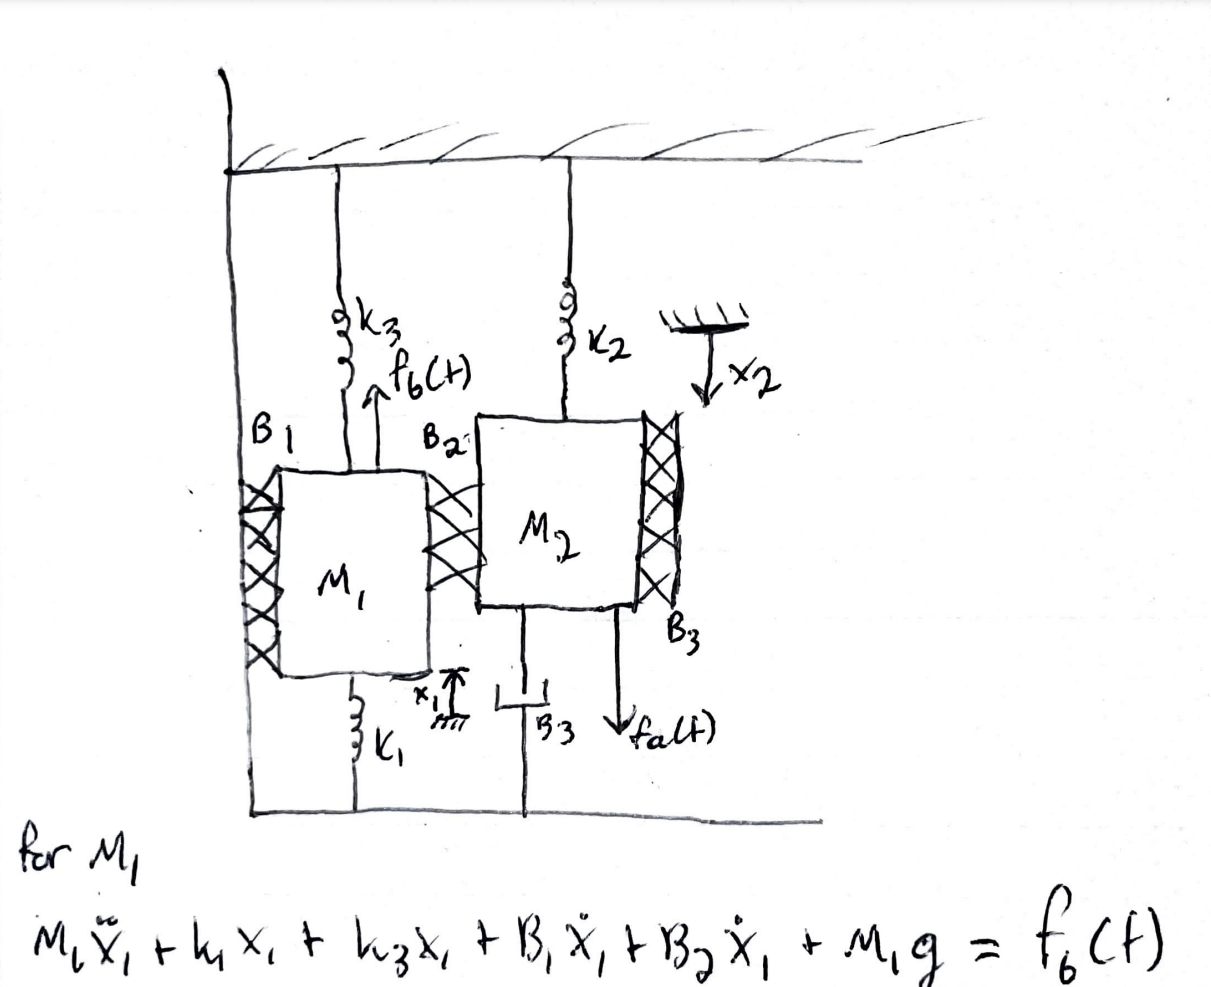 k3
fb(t)
K2
x2
B1
B2
M1
M2
B3
x1
K1
B3
fa(t)
for M1
M1ẍ1 + k1x1 + k3x1 + B1ẋ1 + B2ẋ1 + M1g = fb(t)